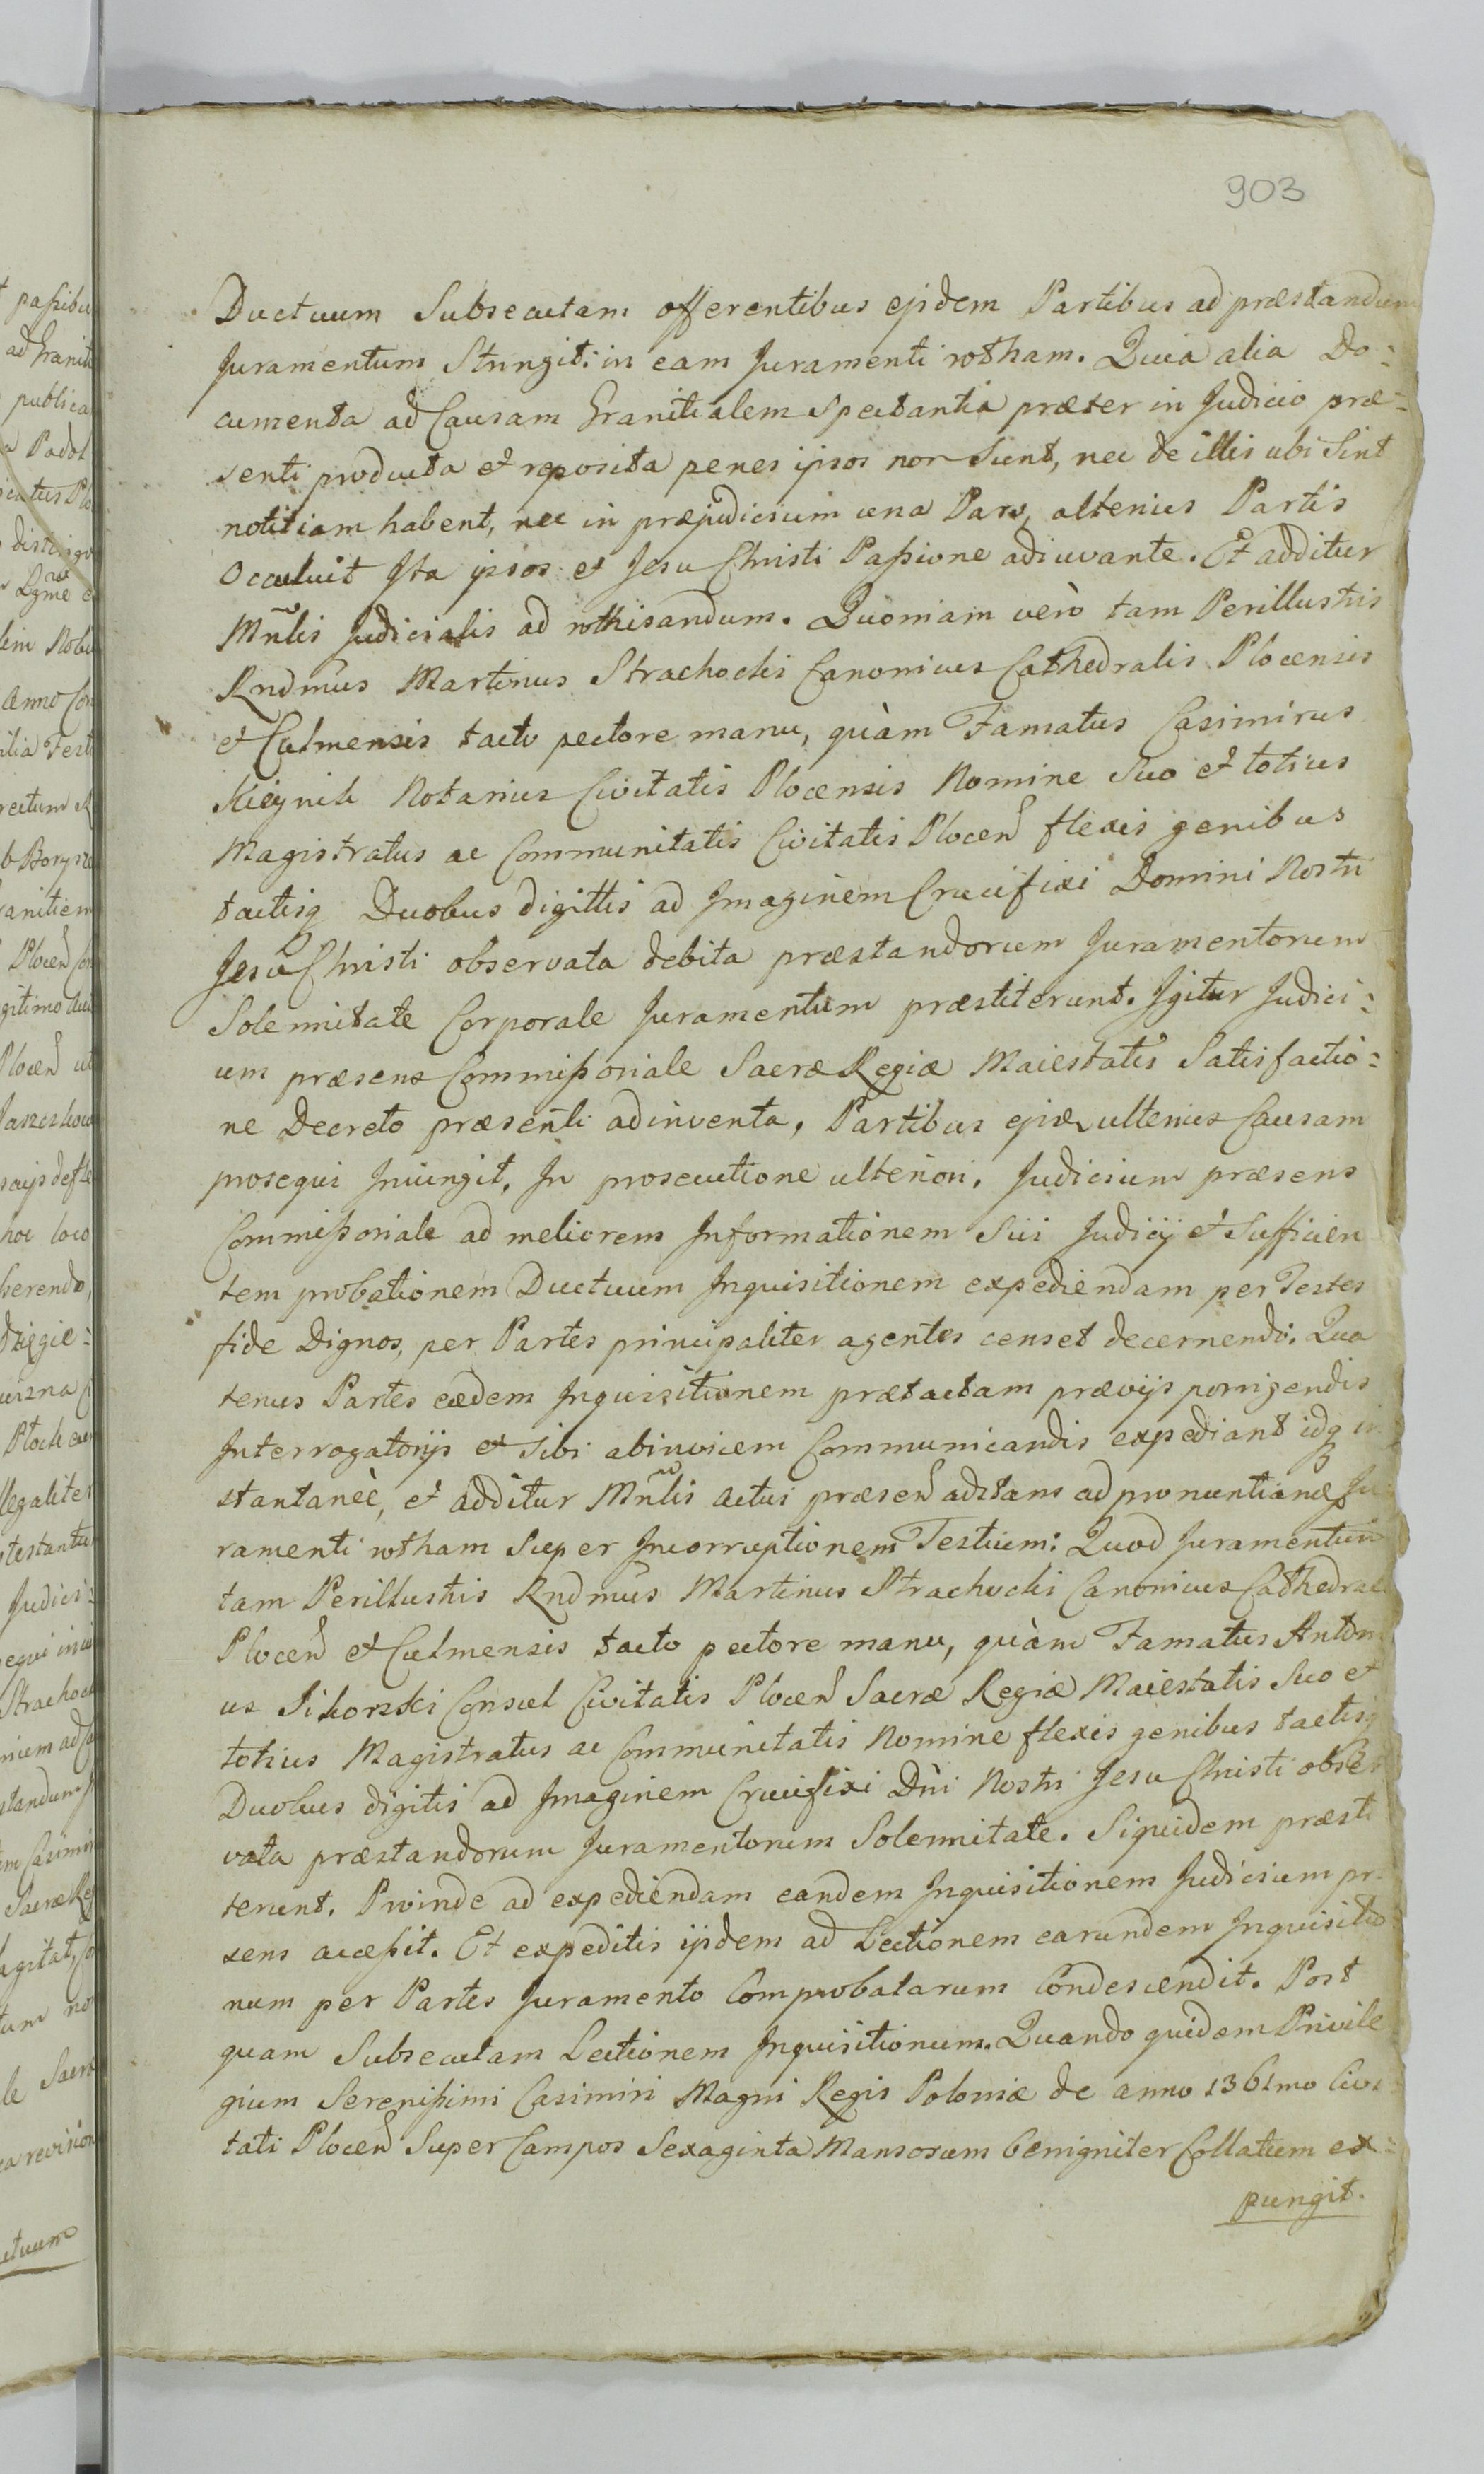 903
Ductuum Subsecutam offerentibus ejsdem Partibus ad præstandum
Juramentum Stringit: in eam Juramenti rotham. Quia alia Do:
cumenta ad Causam Granitialem spectantia præter in Judicio præ:
senti producta et reposita penes ipsos non sunt, nec de illis ubi sint
notitiam habent, nec in præjudicium una Pars, alterius Partis
Occuluit Ita ipsos et Jesu Christi Passione adiuvante. Et additur
Mnlis Judicialis ad rothisandum. Quoniam verò tam Perillustris
Rndmus Martinus Strachocki Canonicus Cathedralis Plocensis
et Culmensis tacto pectore manu, quàm Famatus Casimirus
Notarius Civitatis Plocensis Nomine Suo et totius
Magistratus ac Communitatis Civitatis Plocen flexis genibus
tactisq Duobus digittis ad Imaginem Crucifixi Domini Nostri
Jesu Christi observata debita præstandorum Juramentorum
Solennitate Corporale Juramentum præstiterunt. Igitur Judici:
um præsens Commissoriale Sacræ Regiæ Maiestatis Satisfactio:
ne Decreto præsenti adinventa, Partibus ulterius Causam
prosequi Iniungit, In prosecutione ulteriori, Judicium præsens
Commissoriale ad meliorem Informationem Sui Judicij et Sufficien
tem probationem Ductuum Inquisitionem expediendam per Testes
fide Dignos, per Partes principaliter agentes censet decernendo: Qua
tenus Partes eædem Inquisitionem prætactam prævijs porrigendis
Interrogatorijs et sibi abinvicem Communicandis expediant idq in
stantaneè, et additur Mnlis actui præsen adstans ad pronuntiand Ju
ramenti rotham Super Incorruptionem Testium: Quod Juramentum
tam Perillustris Rndmus Martinus Strachocki Canonicus Cathedral
Plocen et Culmensis tacto pectore manu, quàm Famatus Antoni
us Sikorski Consul Civitatis Plocen Sacræ Regiæ Maiestatis Suo et
totius Magistratus ac Communitatis Nomine flexis genibus tactisq
Duobus digitis ad Imaginem Crucifixi Dni Nostri Jesu Christi obser
vata præstandorum Juramentorum Solennitate. Siquidem præsti
terunt. Proinde ad expediendam eandem Inquisitionem Judicium præ
sens accessit. Et expeditis ijsdem ad Lectionem earundem Inquisitio
num per Partes Juramento Comprobatarum Condescendit. Post
quam Subsecutam Lectionem Inquisitionum. Quando quidem Privile
gium Serenissimi Casimiri Magni Regis Poloniæ de anno 1361mo Civi
tati Plocen Super Campos Sexaginta Mansorum benigniter Collatum ex:
pungit.